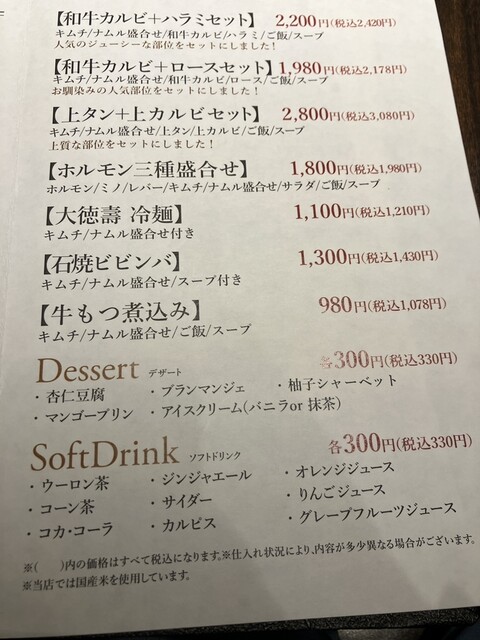 【和牛カルビ+ハラミセット】 2,200円(税込2,420円)
キムチ/ナムル盛合せ/和牛カルビ/ハラミ/ご飯/スープ
人気のジューシーな部位をセットにしました!
【和牛カルビ+ロースセット】 1,980円(税込2,178円)
キムチ/ナムル盛合せ/和牛カルビ/ロース/ご飯/スープ
お馴染みの人気部位をセットにしました!
【上タン+上カルビセット】 2,800円(税込3,080円)
キムチ/ナムル盛合せ/上タン/上カルビ/ご飯/スープ
上質な部位をセットにしました!
【ホルモン三種盛合せ】 1,800円(税込1,980円)
ホルモン/ミノ/レバー/キムチ/ナムル盛合せ/サラダ/ご飯/スープ
【大徳壽 冷麺】 1,100円(税込1,210円)
キムチ/ナムル盛合せ付き
【石焼ビビンバ】 1,300円(税込1,430円)
キムチ/ナムル盛合せ/スープ付き
【牛もつ煮込み】 980円(税込1,078円)
キムチ/ナムル盛合せ/ご飯/スープ
Dessert デザート 各300円(税込330円)
・杏仁豆腐 ・ブランマンジェ ・柚子シャーベット
・マンゴープリン ・アイスクリーム(バニラor 抹茶)
SoftDrink ソフトドリンク 各300円(税込330円)
・ウーロン茶 ・ジンジャエール ・オレンジジュース
・コーン茶 ・サイダー ・りんごジュース
・コカ・コーラ ・カルピス ・グレープフルーツジュース
※( )内の価格はすべて税込になります。※仕入れ状況により、内容が多少異なる場合がございます。
※当店では国産米を使用しています。